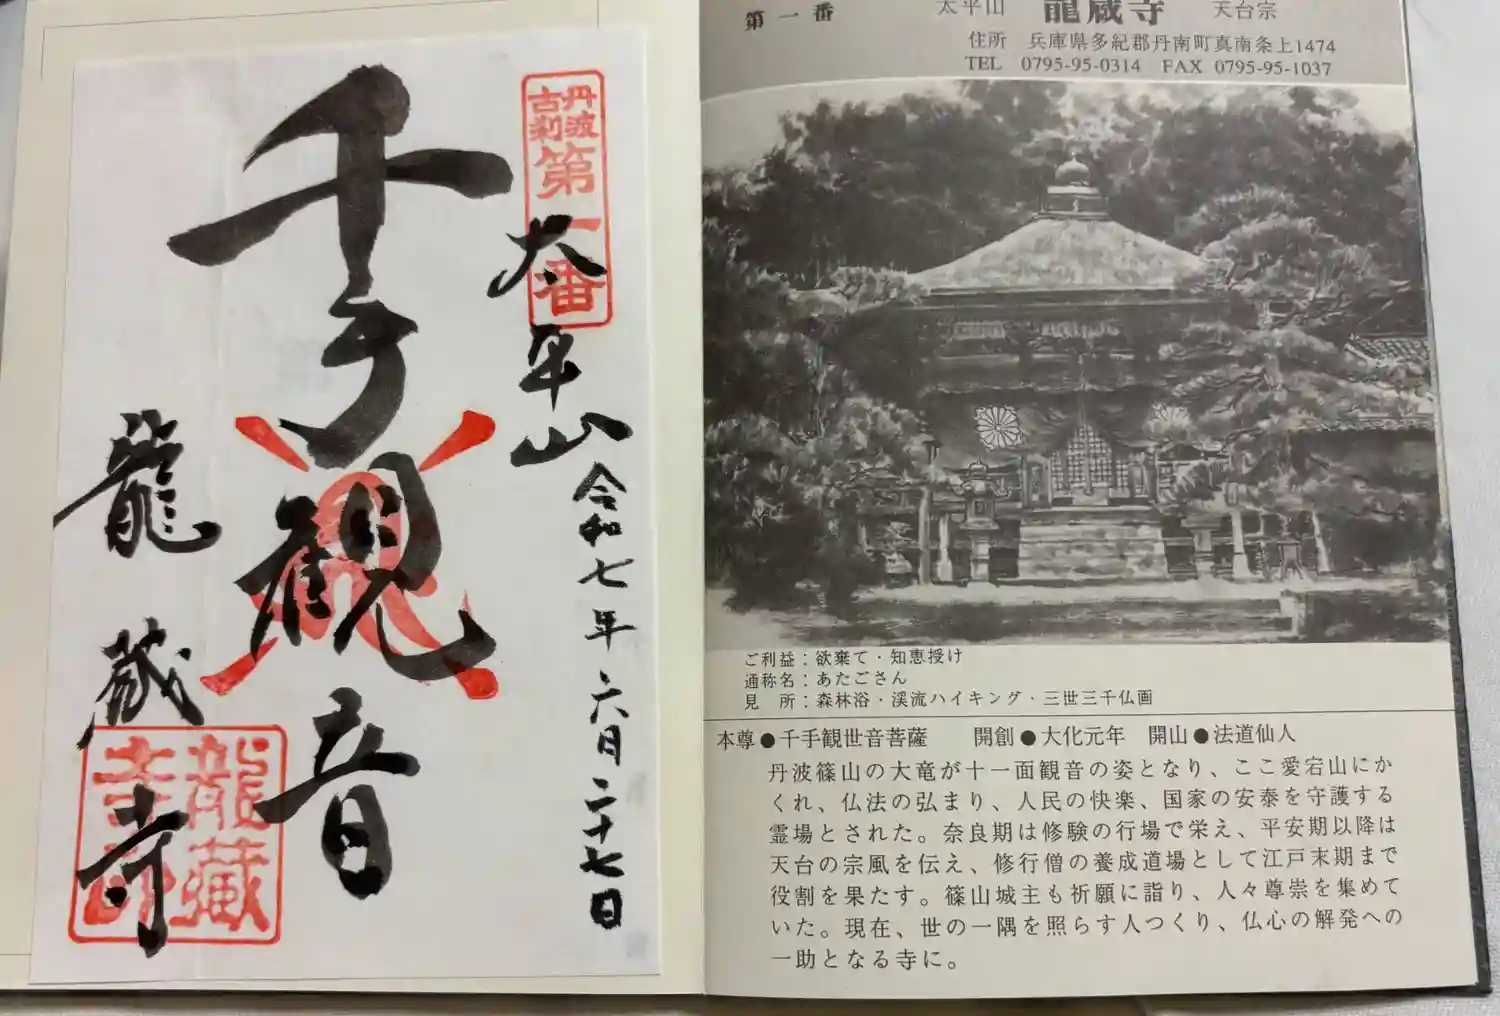 丹波
古刹
第一番
太平山
令和七年六月二十七日
千手観音
龍蔵寺
龍蔵
寺印
第一番
太平山 龍蔵寺 天台宗
住所 兵庫県多紀郡丹南町真南条上1474
TEL 0795-95-0314 FAX 0795-95-1037
ご利益：欲棄て・知恵授け
通称名：あたごさん
見 所：森林浴・渓流ハイキング・三世三千仏画
本尊●千手観世音菩薩 開創●大化元年 開山●法道仙人
丹波篠山の大竜が十一面観音の姿となり、ここ愛宕山にか
くれ、仏法の弘まり、人民の快楽、国家の安泰を守護する
霊場とされた。奈良期は修験の行場で栄え、平安期以降は
天台の宗風を伝え、修行僧の養成道場として江戸末期まで
役割を果たす。篠山城主も祈願に詣り、人々尊崇を集めて
いた。現在、世の一隅を照らす人つくり、仏心の解発への
一助となる寺に。